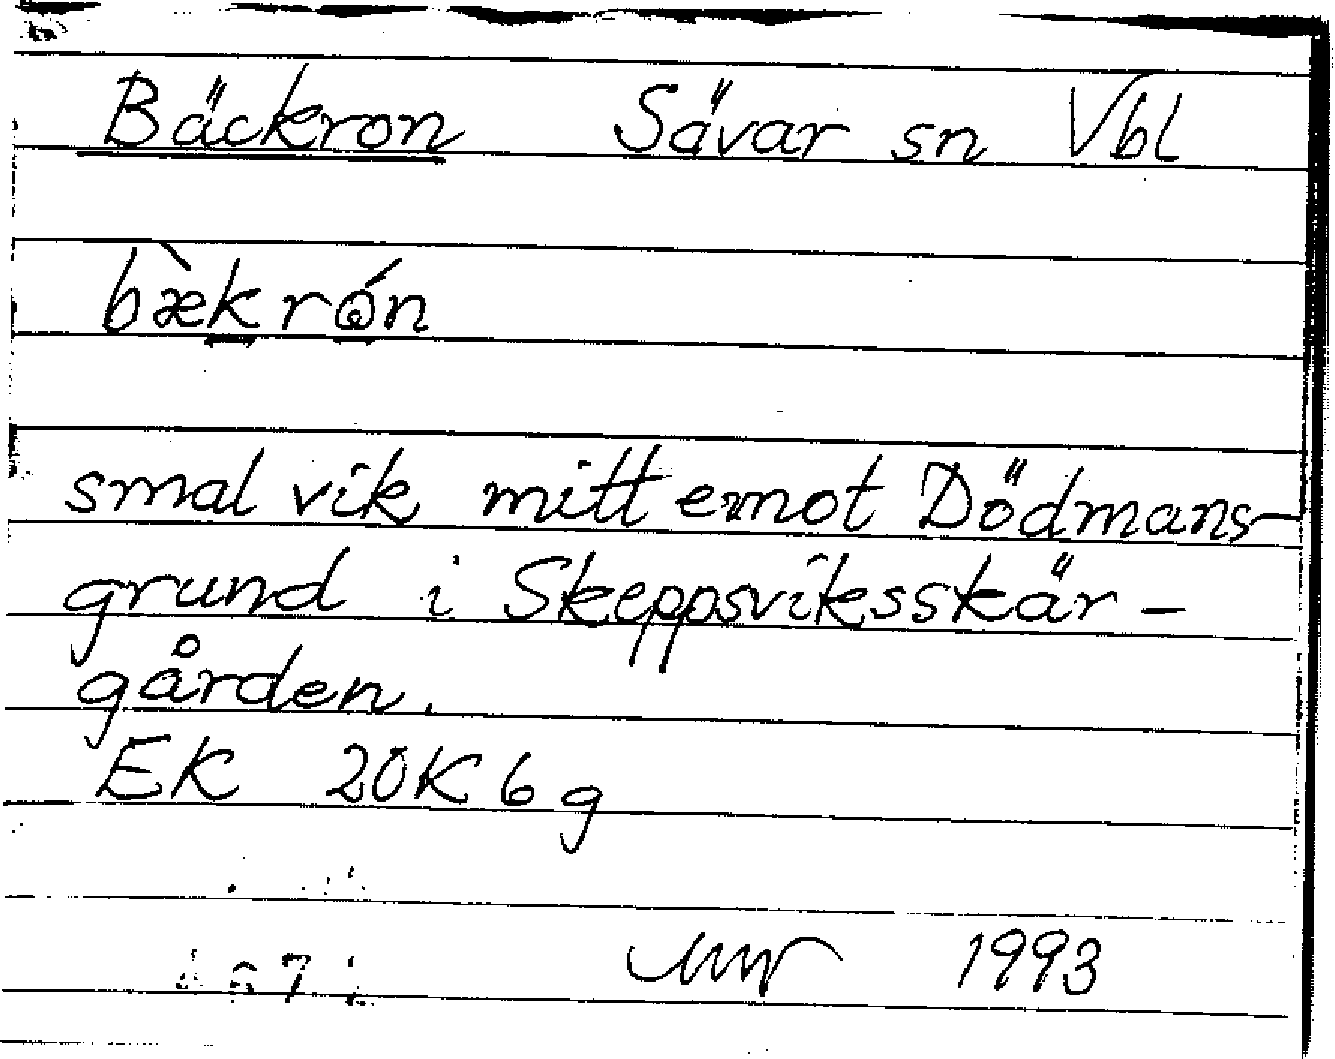 Bäckron Sävar sn Vbl
bæ̀krǿn
smal vik mitt emot Dödmans-
grund i Skeppsviksskär-
gården.
EK 20K6g
1993